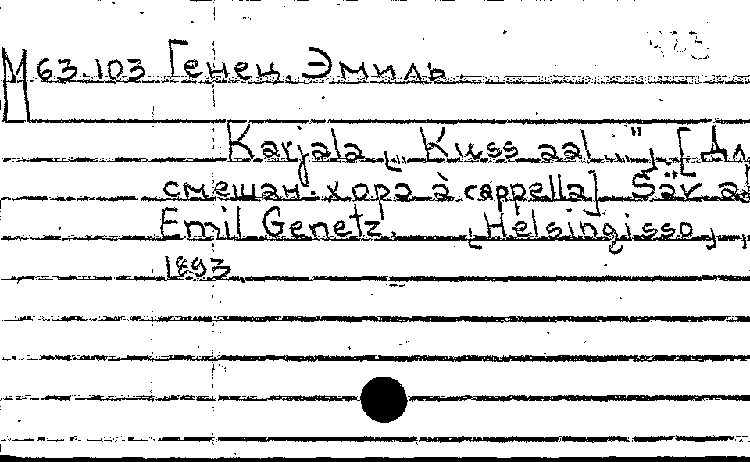 423
М 63.103 Генец, Эмиль.
Karjala „Kuss aal..." [Дл
смешан. хора à cappella] Säv al
Emil Genetz. [Helsingisso],
1893